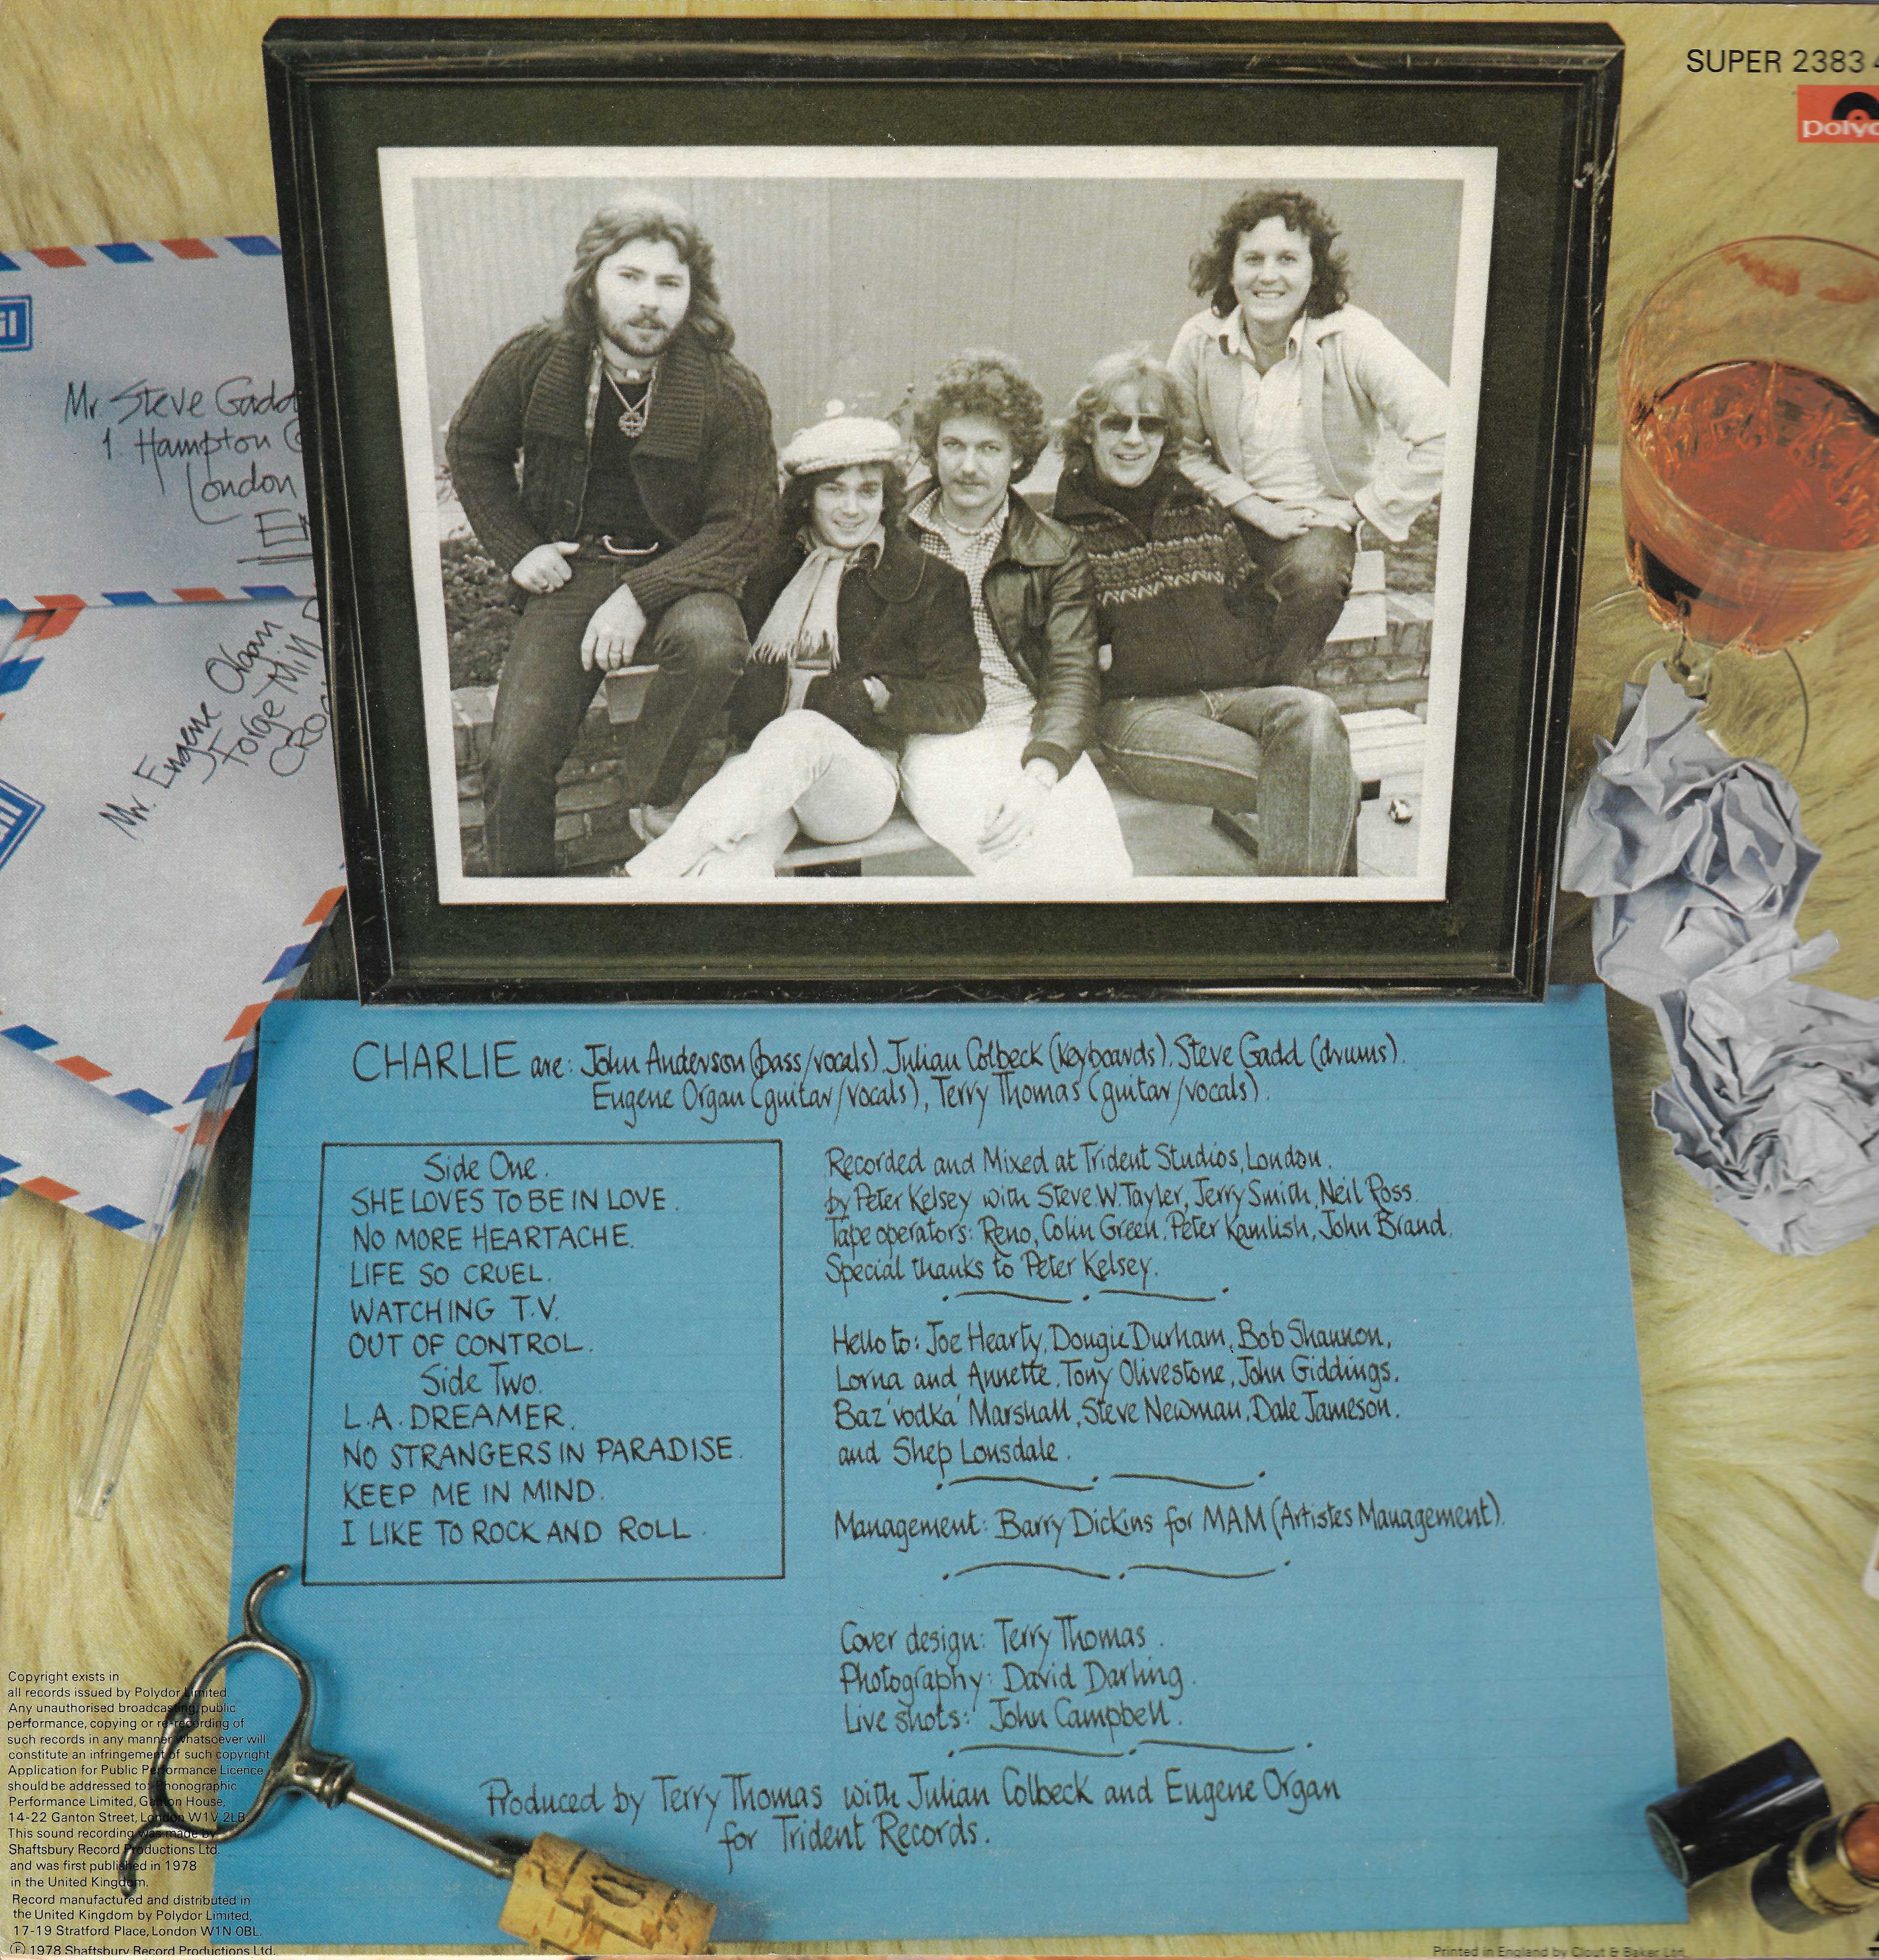 SUPER 2383
Mr. Steve Gadd
1 Hampton
London
Mr. Eugene Organ
Forge Mill
CHARLIE are: John Anderson (bass/vocals), Julian Colbeck (keyboards), Steve Gadd (drums).
Eugene Organ (guitar/vocals), Terry Thomas (guitar/vocals).
Side One.
SHE LOVES TO BE IN LOVE.
NO MORE HEARTACHE.
LIFE SO CRUEL.
WATCHING T.V.
OUT OF CONTROL.
Side Two.
L.A. DREAMER.
NO STRANGERS IN PARADISE.
KEEP ME IN MIND.
I LIKE TO ROCK AND ROLL.
Recorded and Mixed at Trident Studios, London.
by Peter Kelsey with Steve W. Tayler, Jerry Smith, Neil Ross.
Tape operators: Reno, Colin Green, Peter Kamlish, John Brand.
Special thanks to Peter Kelsey.
Hello to: Joe Hearty, Dougie Durham, Bob Shannon,
Lorna and Annette, Tony Olivestone, John Giddings,
Baz 'vodka' Marshall, Steve Newman, Dale Jameson.
and Shep Lonsdale.
Management: Barry Dickins for MAM (Artistes Management).
Cover design: Terry Thomas.
Photography: David Darling.
Live shots: John Campbell.
Produced by Terry Thomas with Julian Colbeck and Eugene Organ
for Trident Records.
Copyright exists in
all records issued by Polydor Limited.
Any unauthorised broadcasting, public
performance, copying or re-recording of
such records in any manner whatsoever will
constitute an infringement of such copyright.
Application for Public Performance Licence
should be addressed to: Phonographic
Performance Limited, Ganton House,
14-22 Ganton Street, London W1V 2LB
This sound recording was made by
Shaftsbury Record Productions Ltd.
and was first published in 1978
in the United Kingdom.
Record manufactured and distributed in
the United Kingdom by Polydor Limited,
17-19 Stratford Place, London W1N 0BL.
℗ 1978 Shaftsbury Record Productions Ltd.
Printed in England by Clout & Baker Ltd.